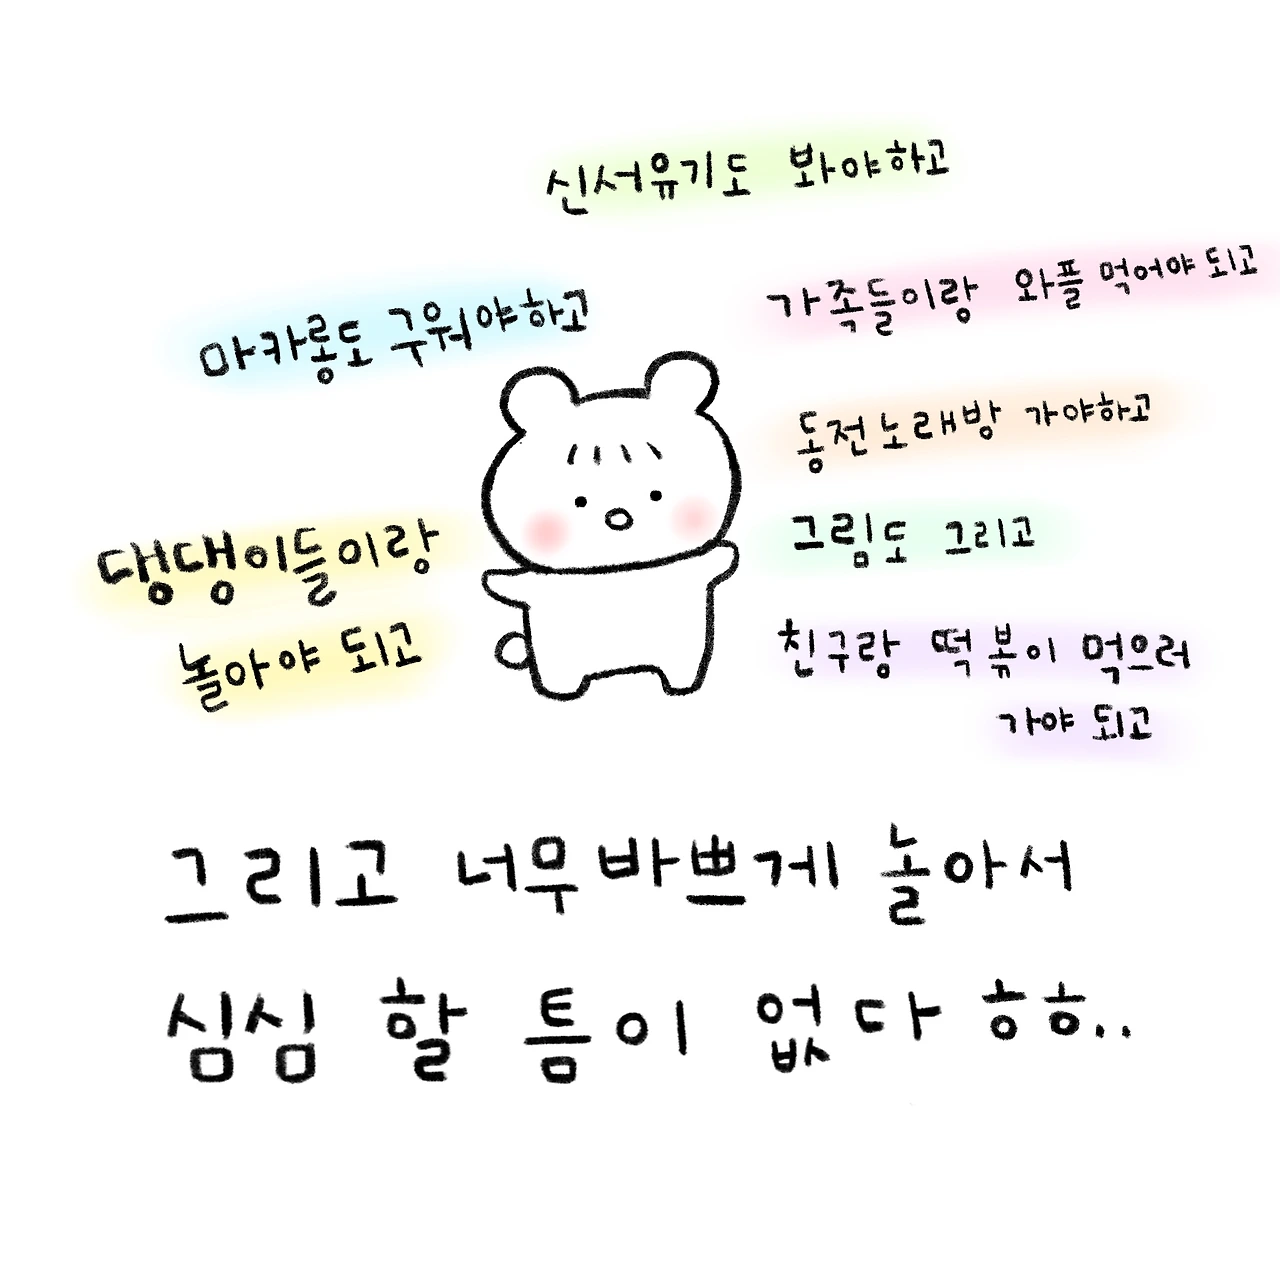 신서유기도 봐야하고
마카롱도 구워야하고
가족들이랑 와플 먹어야 되고
동전노래방 가야하고
댕댕이들이랑
놀아야 되고
그림도 그리고
친구랑 떡볶이 먹으러
가야 되고
그리고 너무바쁘게 놀아서
심심 할 틈이 없다 ㅎㅎ..